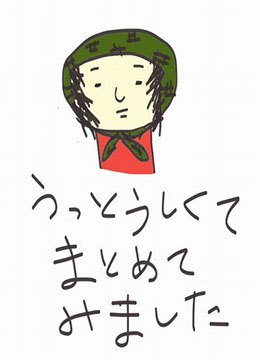 うっとうしくて
まとめて
みました